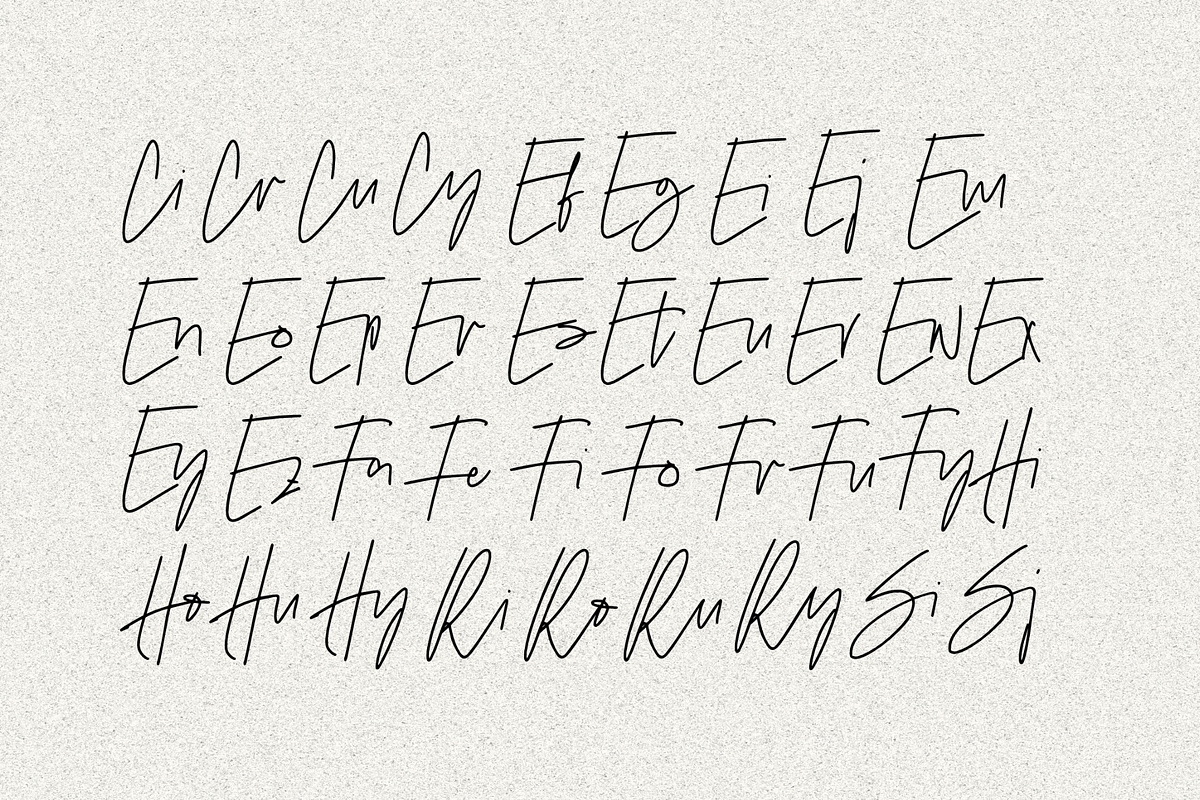 Ci Cr Cu Cy Ef Eg Ei Ej Em
En Eo Ep Er Es Et Eu Ev Ew Ex
Ey Ez Fa Fe Fi Fo Fr Fu Fy Hi
Ho Hu Hy Ri Ro Ru Ry Si Sj